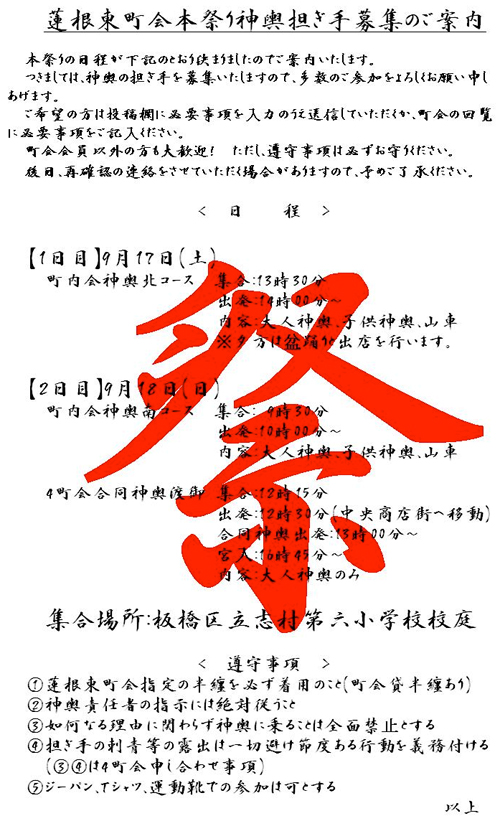 蓮根東町会本祭り神輿担ぎ手募集のご案内
本祭りの日程が下記のとおり決まりましたのでご案内いたします。
つきましては、神輿の担ぎ手を募集いたしますので、多数のご参加をよろしくお願い申し
あげます。
ご希望の方は投稿欄に必要事項を入力の上送信していただくか、町会の回覧
に必要事項をご記入ください。
町会会員以外の方も大歓迎! ただし、遵守事項は必ずお守りください。
後日、再確認の連絡をさせていただく場合がありますので、予めご了承ください。
< 日 程 >
【1日目】9月17日(土)
町内会神輿北コース 集合:13時30分
出発:14時00分~
内容:大人神輿、子供神輿、山車
※夕方は盆踊りと出店を行います。
【2日目】9月18日(日)
町内会神輿南コース 集合: 9時30分
出発:10時00分~
内容:大人神輿、子供神輿、山車
4町会合同神輿渡御 集合:12時15分
出発:12時30分(中央商店街へ移動)
合同神輿出発:13時00分~
宮入:16時45分~
内容:大人神輿のみ
祭
集合場所:板橋区立志村第六小学校校庭
< 遵守事項 >
①蓮根東町会指定の半纏を必ず着用のこと(町会貸半纏あり)
②神輿責任者の指示には絶対従うこと
③如何なる理由に関わらず神輿に乗ることは全面禁止とする
④担ぎ手の刺青等の露出は一切避け節度ある行動を義務付ける
(③④は4町会申し合わせ事項)
⑤ジーパン、Tシャツ、運動靴での参加は可とする
以上